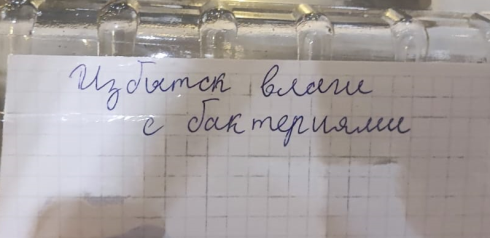 Избыток влаги
с бактериями